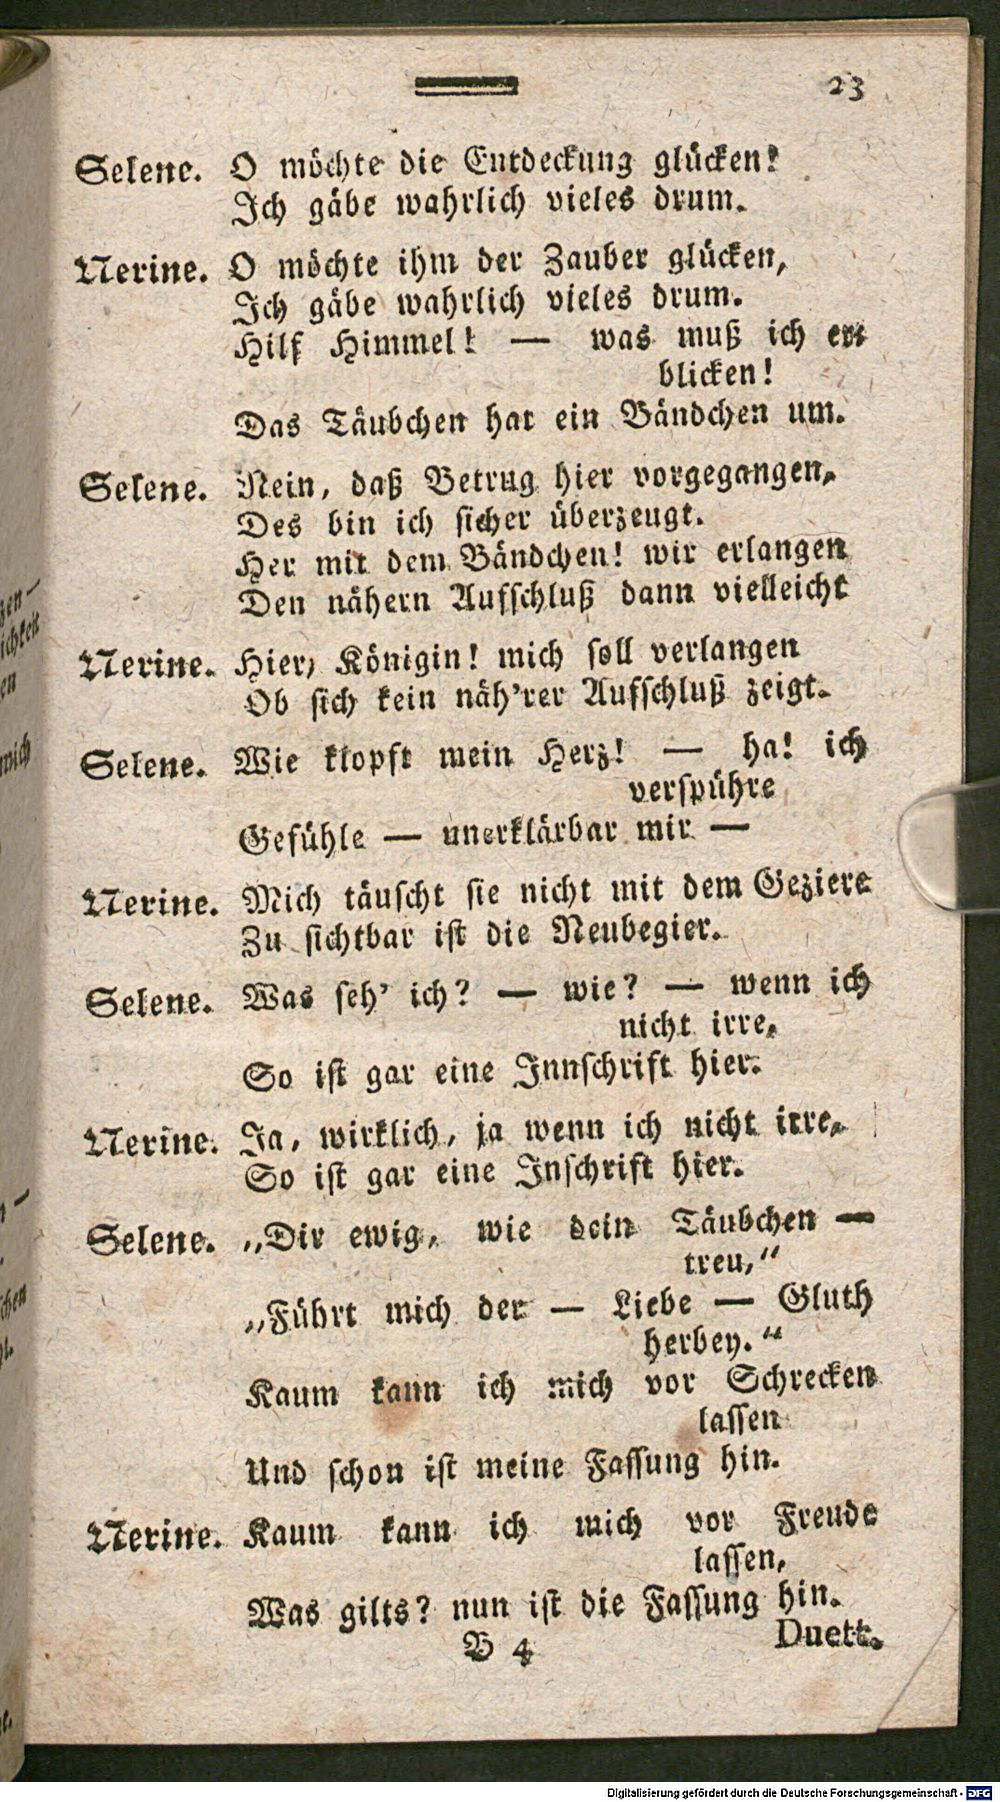 23
Selene. O möchte die Entdeckung glücken!
Ich gäbe wahrlich vieles drum.
Nerine. O möchte ihm der Zauber glücken,
Ich gäbe wahrlich vieles drum.
Hilf Himmel! — was muß ich er-
blicken!
Das Täubchen hat ein Bändchen um.
Selene. Nein, daß Betrug hier vorgegangen,
Des bin ich sicher überzeugt.
Her mit dem Bändchen! wir erlangen
Den nähern Aufschluß dann vielleicht
Nerine. Hier, Königin! mich soll verlangen
Ob sich kein näh'rer Aufschluß zeigt.
Selene. Wie klopft mein Herz! — ha! ich
verspühre
Gefühle — unerklärbar mir —
Nerine. Mich täuscht sie nicht mit dem Geziere
Zu sichtbar ist die Neubegier.
Selene. Was seh' ich? — wie? — wenn ich
nicht irre,
So ist gar eine Innschrift hier.
Nerine. Ja, wirklich, ja wenn ich nicht irre,
So ist gar eine Inschrift hier.
Selene. „Dir ewig, wie dein Täubchen —
treu,“
„Führt mich der — Liebe — Gluth
herbey.“
Kaum kann ich mich vor Schrecken
lassen
Und schon ist meine Fassung hin.
Nerine. Kaum kann ich mich vor Freude
lassen,
Was gilts? nun ist die Fassung hin.
B 4 Duett.
zen —
ichkeit
en
mich
n —
chen
ht.
te.
Digitalisierung gefördert durch die Deutsche Forschungsgemeinschaft - DFG